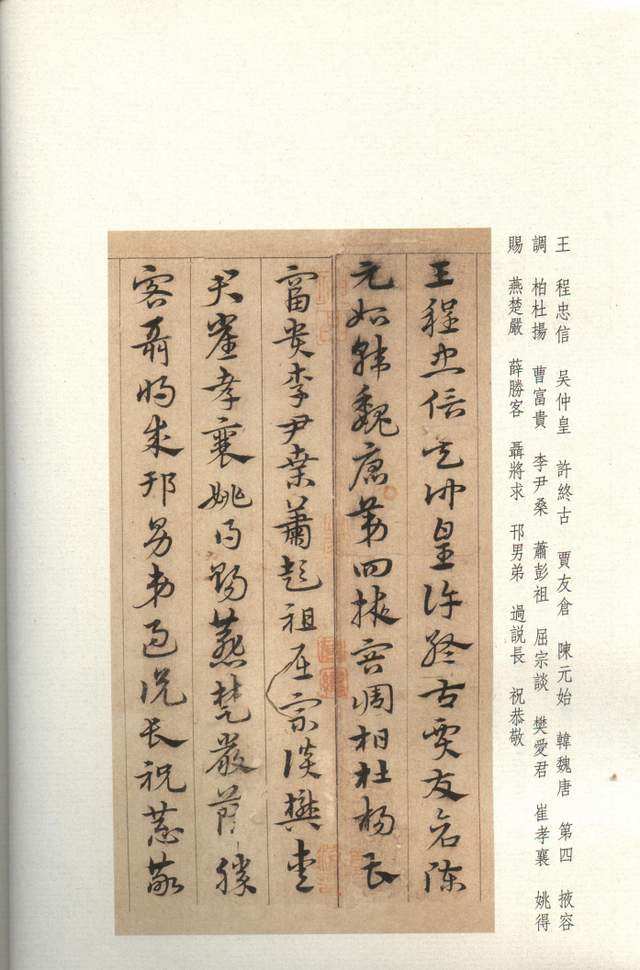 王 程忠信 吳仲皇 許終古 賈友倉 陳元始 韓魏唐 第四 掖容
調 柏杜揚 曹富貴 李尹桑 蕭彭祖 屈宗談 樊愛君 崔孝襄 姚得
賜 燕楚嚴 薛勝客 聶將求 邗男弟 過説長 祝恭敬
王程忠信吳仲皇許終古賈友倉陳
元始韓魏唐第四掖容調柏杜楊曹
富貴李尹桑蕭彭祖屈宗談樊愛
君崔孝襄姚得賜燕楚嚴薛勝
客聶將求邗男弟過説長祝恭敬